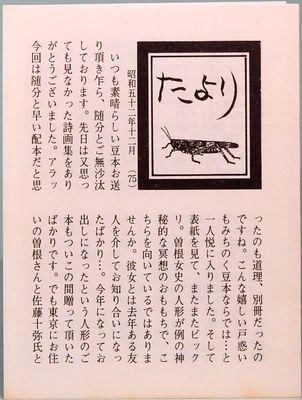 たより
昭和五十二年十二月　(75)
いつも素晴らしい豆本お送
り頂き乍ら、随分とご無沙汰
しております。先日は又思っ
ても見なかった詩画集をあり
がとうございました。アラッ
今回は随分と早い配本だと思
ったのも道理、別冊だったの
ですね。こんな嬉しい戸惑い
もみちのく豆本ならでは…と
一人悦に入りました。そして
表紙を見て、またまたビック
リ。曽根女史の人形が例の神
秘的な冥想のおももちで、こ
ちらを向いているではありま
せんか。彼女とは去年ある友
人を介してお知り合いになっ
たばかり…。今年になってお
出しになったという人形のご
本もついこの間贈って頂いた
ばかりです。でも東京にお住
いの曽根さんと佐藤十弥氏と